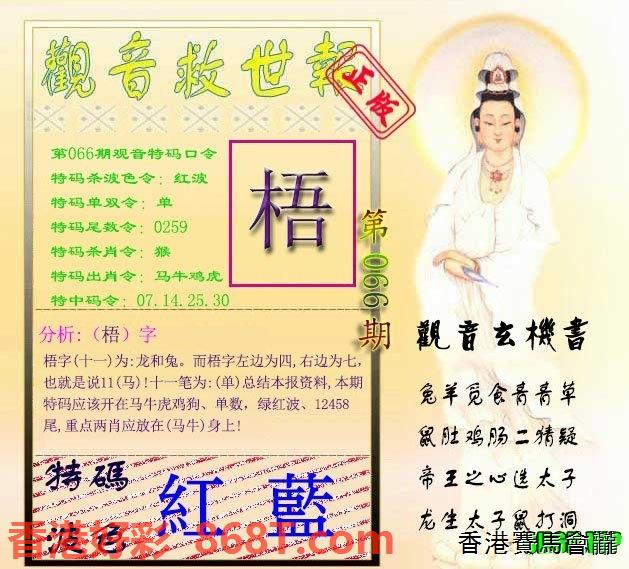 觀音救世報
正版
第066期观音特码口令
特码杀波色令：红波
特码单双令：单
特码尾数令：0259
特码杀肖令：猴
特码出肖令：马牛鸡虎
特中码令：07.14.25.30
梧
第066期
分析:（梧）字
梧字(十一)为:龙和兔。而梧字左边为四,右边为七，
也就是说11(马)!十一笔为:(单)总结本报资料,本期
特码应该开在马牛虎鸡狗、单数，绿红波、12458
尾,重点两肖应放在(马牛)身上!
觀音玄機書
兔羊觅食青青草
鼠肚鸡肠二猜疑
帝王之心选太子
龙生太子鼠打洞
特碼
波色
紅 藍
香港好彩 868T.com
香港賽馬會